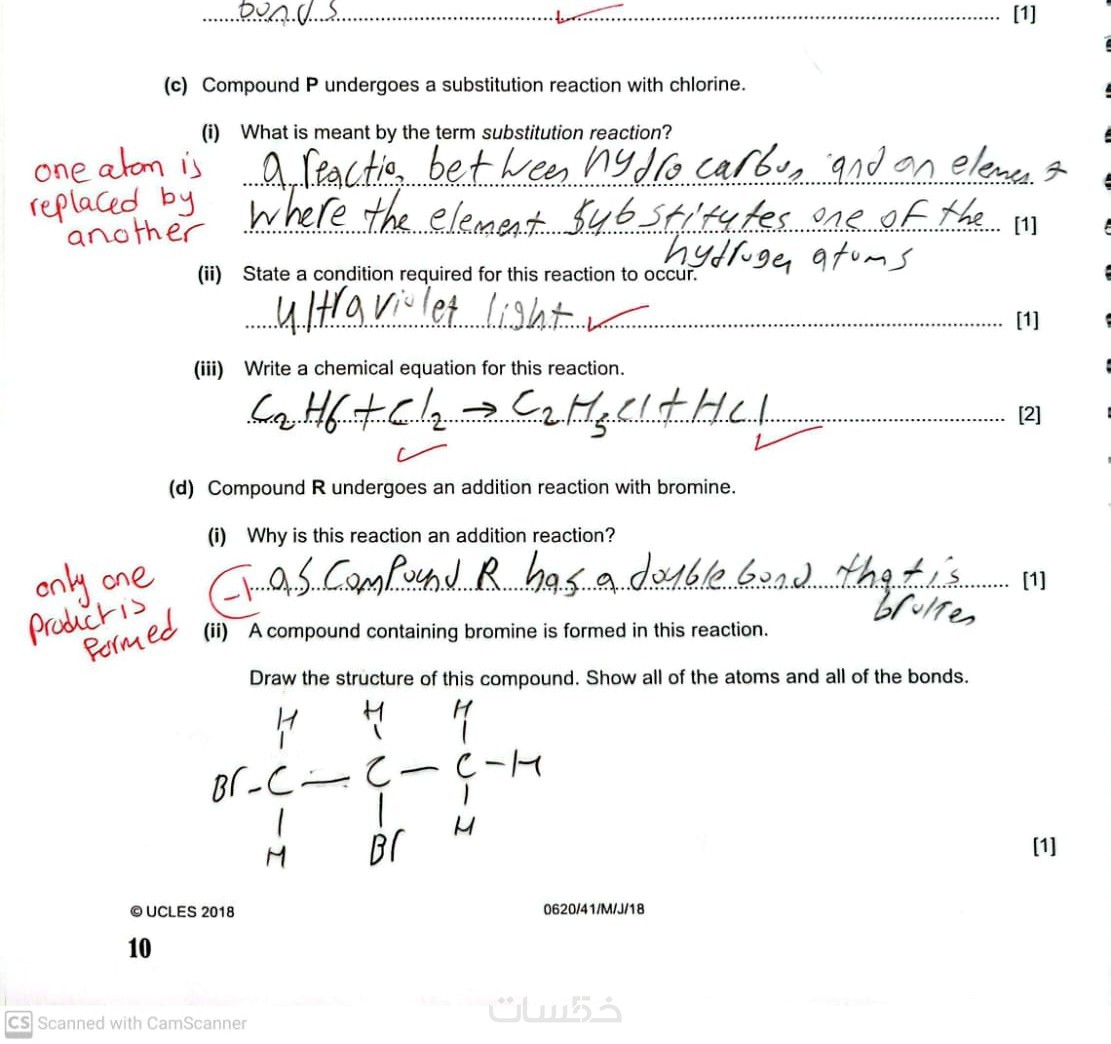 bonds [1]
(c) Compound P undergoes a substitution reaction with chlorine.
(i) What is meant by the term substitution reaction?
one atom is
replaced by
another
a reaction between hydrocarbon and an element
where the element substitutes one of the [1]
hydrogen atoms
(ii) State a condition required for this reaction to occur.
ultraviolet light [1]
(iii) Write a chemical equation for this reaction.
C2H6 + Cl2 → C2H5Cl + HCl [2]
(d) Compound R undergoes an addition reaction with bromine.
(i) Why is this reaction an addition reaction?
only one
Product is
formed
-1 as Compound R has a double bond that is [1]
broken
(ii) A compound containing bromine is formed in this reaction.
Draw the structure of this compound. Show all of the atoms and all of the bonds.
H H H
Br-C-C-C-H
H Br H
[1]
© UCLES 2018 0620/41/M/J/18
10
خمسات
CS Scanned with CamScanner